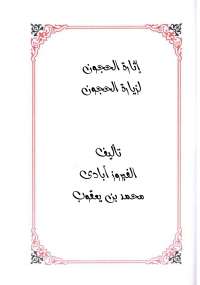 إثارة الحجون
لزيارة الحجون
تأليف
الفيروز أبادى
محمد بن يعقوب